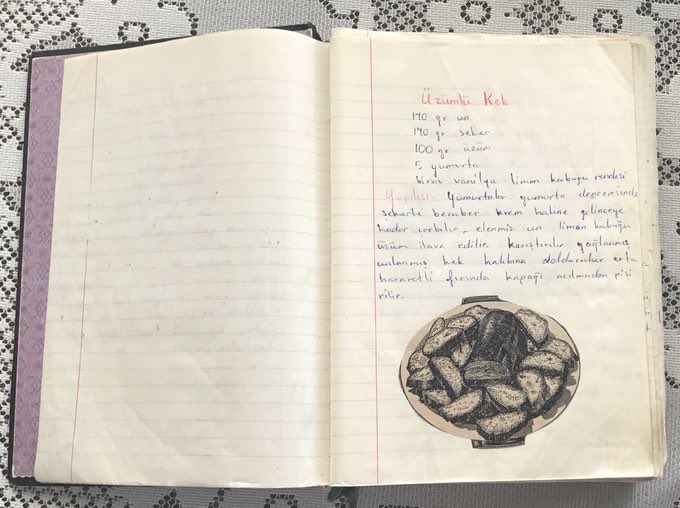 Üzümlü Kek
170 gr un
170 gr şeker
100 gr üzüm
5 yumurta
biraz vanilya limon kabuğu rendesi
Yapılışı: Yumurtalar yumurta
şekerle beraber krem haline gelinceye
kadar çırbılır, elenmiş un limon kabuğu
üzüm ilave edilir. karıştırılır yağlanmış
unlanmış kek kalıbına doldurulur orta
hararetli fırında kapağı açılmadan pişi
rilir.